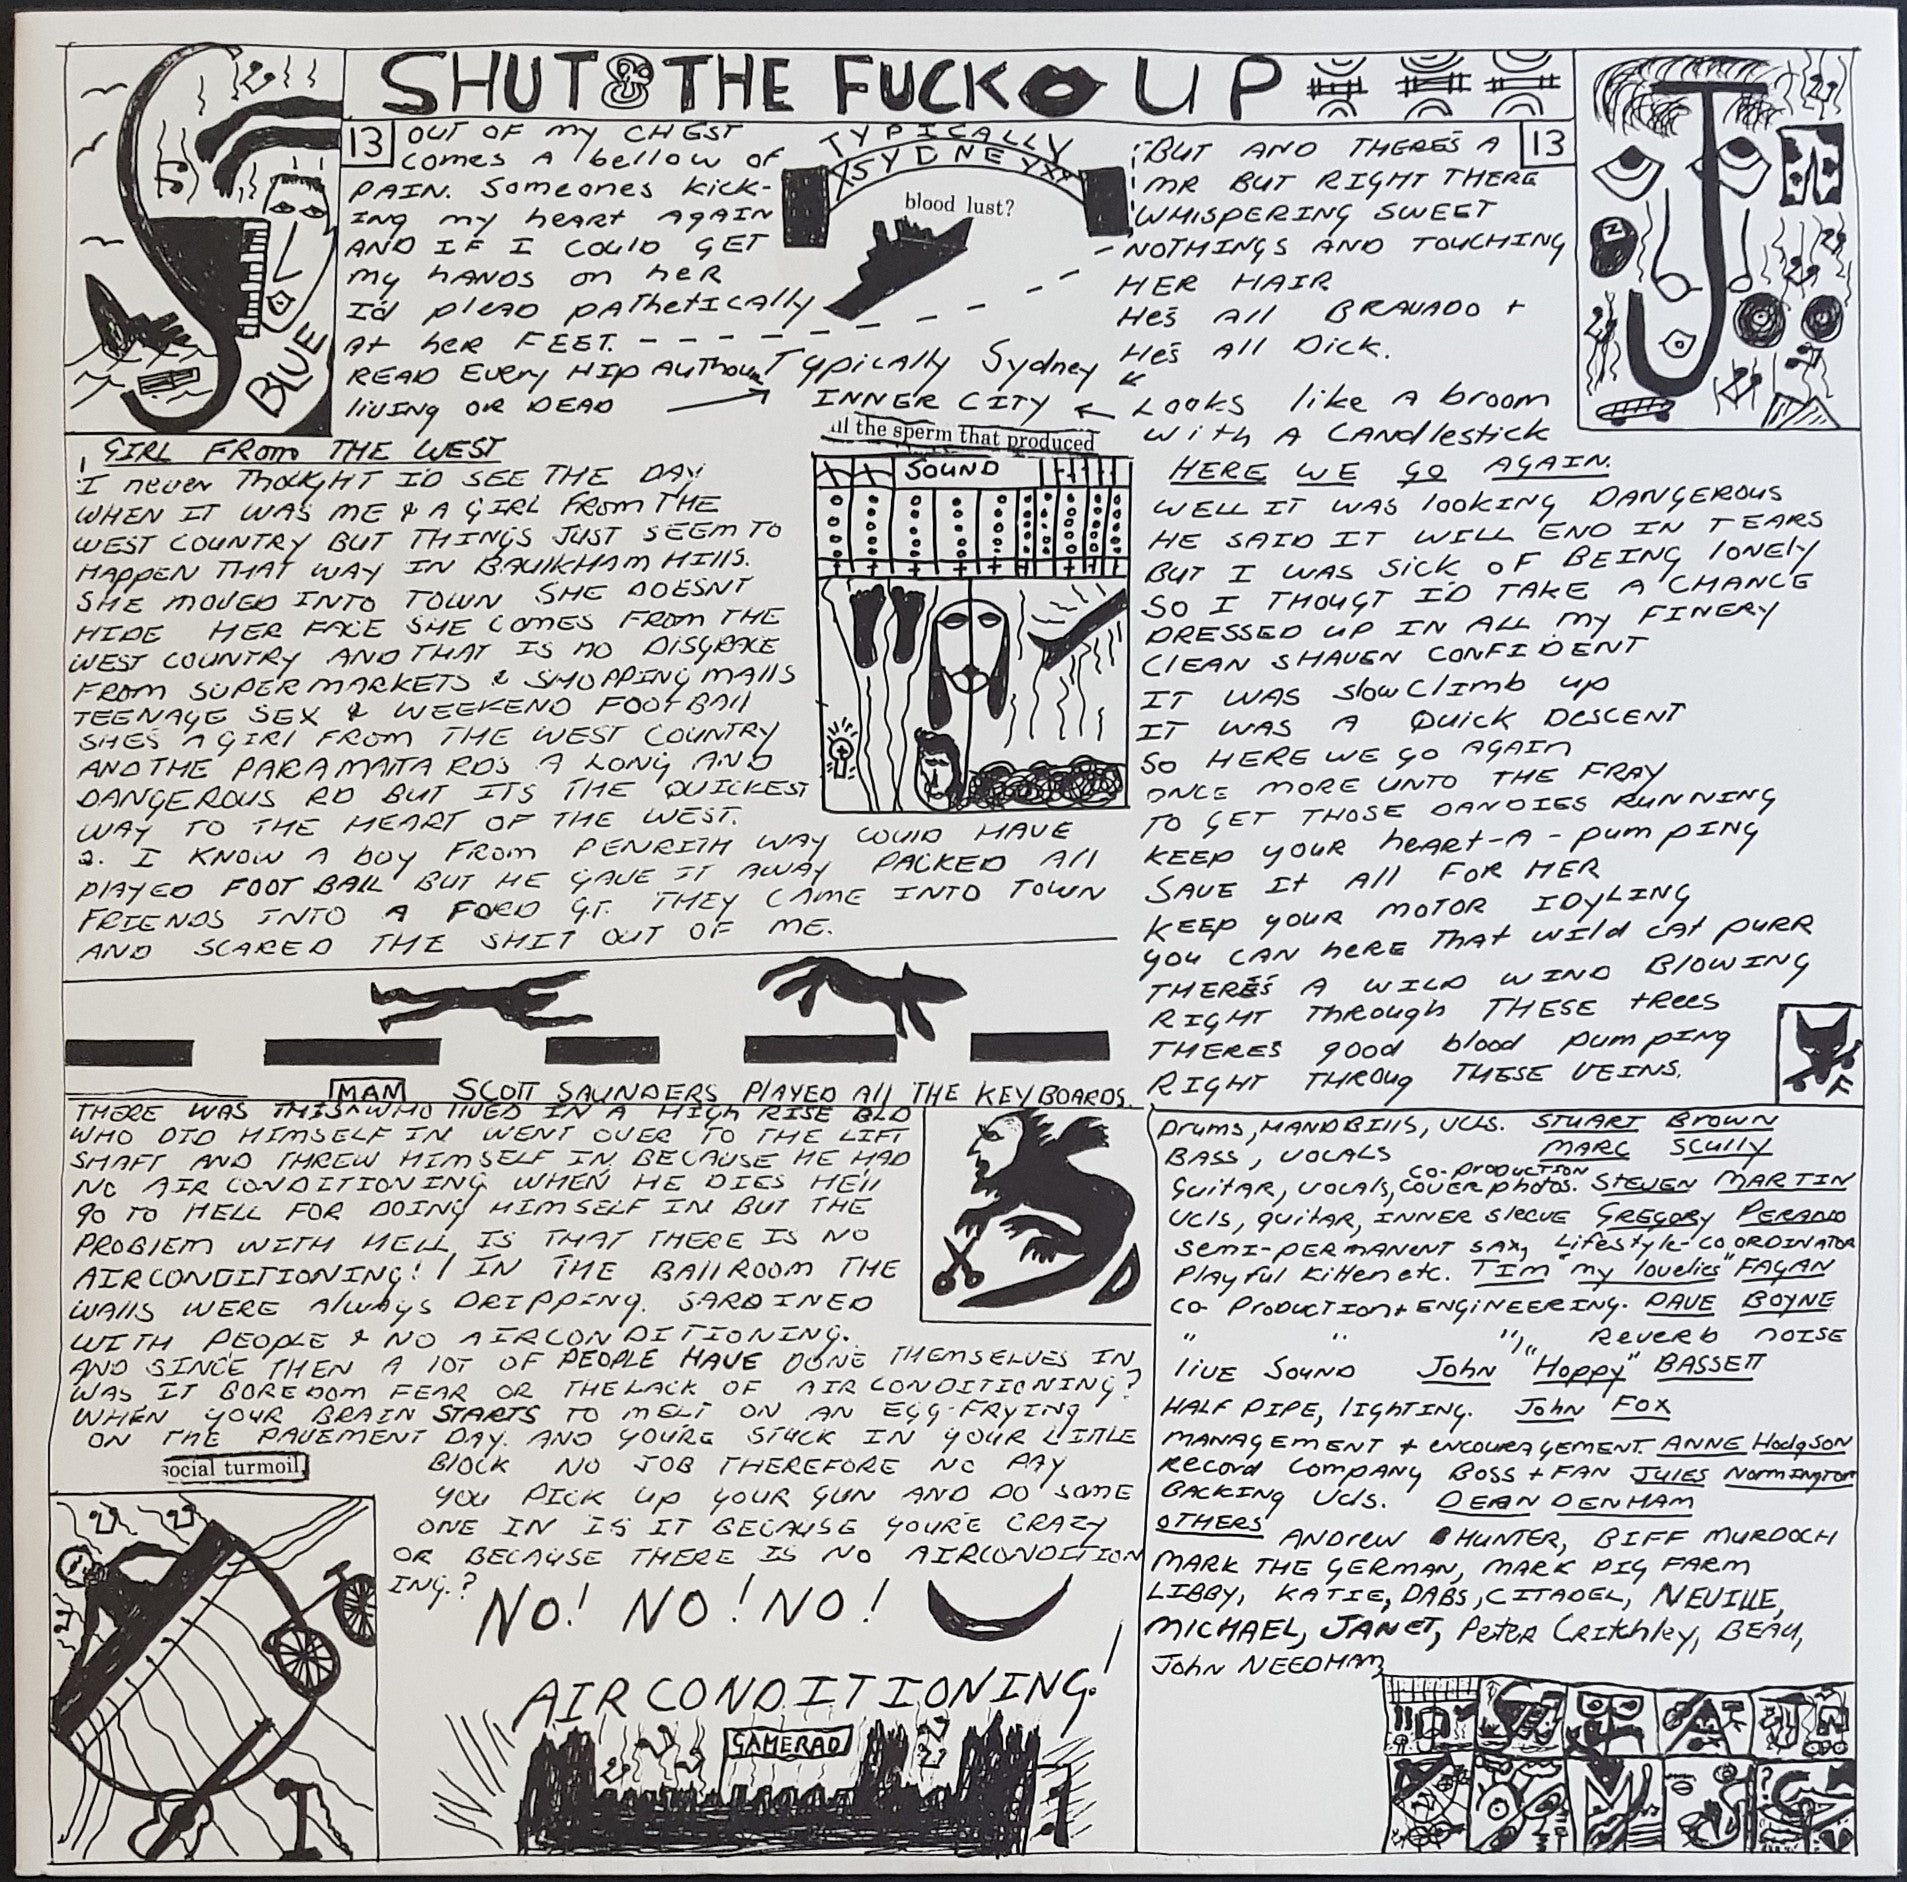 SHUT & THE FUCK UP
13
OUT OF MY CHEST
COMES A bellow OF
PAIN. SOMEONES KICK-
ING MY heart AGAIN
AND IF I COULD GET
MY hANDS ON heR
I'd pleAD pAThetICAlly
At heR FEET.
READ EVERY HIP AUTHOUR
lIVING OR DEAD
TYPICALLY
SYDNEY
blood lust?
Typically Sydney
INNER CITY
ul the sperm that produced
SOUND
13
BUT AND THERE'S A
MR BUT RIGHT THERE
WHISPERING SWEET
NOTHINGS AND TOUCHING
HER HAIR
He's All BRAVADO +
He's All DICK.
Looks like A broom
with A CANDlestick
BLUE
GIRL FROM THE WEST
I never THOUGHT I'D SEE THE DAY
WHEN IT WAS ME & A GIRL FROM THE
WEST COUNTRY BUT THINGS JUST SEEM TO
HAPPEN THAT WAY IN BAULKHAM HILLS.
SHE MOVED INTO TOWN SHE DOESNT
HIDE HER FACE SHE COMES FROM THE
WEST COUNTRY AND THAT IS NO DISGRACE
FROM SUPERMARKETS & SHOPPING MALLS
TEENAGE SEX & WEEKEND FOOTBALL
SHE'S A GIRL FROM THE WEST COUNTRY
AND THE PARAMAITA RDS A LONG AND
DANGEROUS RD BUT IT'S THE QUICKEST
WAY TO THE HEART OF THE WEST.
2. I KNOW A boy FROM PENRITH WAY COULD HAVE
PLAYED FOOT BALL BUT HE GAVE IT AWAY PACKED All
FRIENDS INTO A FORD G.T. THEY CAME INTO TOWN
AND SCARED THE SHIT OUT OF ME.
HERE WE GO AGAIN.
WELL IT WAS looKING DANGEROUS
HE SAID IT WILL END IN TEARS
BUT I WAS SICK OF BEING lONELY
SO I THOUGT I'D TAKE A CHANCE
DRESSED UP IN ALL MY FINERY
CLEAN SHAVEN CONFIDENT
IT WAS slow Climb up
IT WAS A QUICK DESCENT
SO HERE WE GO AGAIN
ONCE MORE UNTO THE FRAY
TO GET THOSE DANDIES RUNNING
KEEP YOUR heart-A-pumping
SAVE It All FOR HER
KEEP YOUR MOTOR IDYLING
YOU CAN hERE That WIld CAt PURR
THERE'S A WILD WIND BLOWING
RIGHT Through THESE tREES
THERES good blood pumping
RIGHT THROUG THESE VEINS.
F
SCOTT SAUNDERS PLAYED All THE KEYBOARDS.
MAN
THERE WAS THIS ^ WHO LIVED IN A HIGh RISE BLD
WHO DID HIMSELF IN WENT OVER TO THE LIFT
SHAFT AND THREW HIMSELF IN BECAUSE HE HAD
NO AIR CONDITIONING WHEN HE DIES HE'll
GO TO HELL FOR DOING HIMSELF IN BUT THE
PROBlEM WITH HELL IS THAT THERE IS NO
AIRCONDITIONING! IN THE BAllROOM THE
WAllS WERE AlwAyS DRIPPING. SARDINED
WITH PEOPLE & NO AIRCONDITIONING.
AND SINCE THEN A lOT OF PEOPLE HAVE DONE THEMSELVES IN
WAS IT BOREDOM FEAR OR THE LACK OF AIR CONDITIONING?
WHEN YOUR BRAIN STARTS TO MELT ON AN EGG-FRYING
ON THE PAVEMENT DAY. AND YOU'RE STUCK IN YOUR LITTLE
BlOCK NO JOB THEREFORE NO PAY
YOU PICK UP YOUR GUN AND DO SOME
ONE IN IS IT BECAUSE YOU'RE CRAZY
OR BECAUSE THERE IS NO AIRCONDITION
ING.?
NO! NO! NO!
AIR CONDITIONING!
social turmoil,
GAMERAD
Drums, HANDBIllS, VCLS. STUART BROWN
BASS, VOCALS MARC SCully
co-production
Guitar, vocals, cover photos. STEVEN MARTIN
Vcls, guitar, INNER sleeve GREGORY PERANO
SEMI-PERMANENT SAX, Lifestyle-COORDINATOR
Playful Kitten etc. TIM "my lovelies" FAGAN
CO PRODUCTION + ENGINEERING. DAVE BOYNE
" " " Reverb NOISE
lIVE SOUND John "Hoppy" BASSETT
HALF PIPE, lIGHTING. John FOX
MANAGEMENT + ENCOURAGEMENT. ANNE HODGSON
RECORD COMPANY BOSS + FAN JULES NORMINGTON
BACKING Vcls. DEAN DENHAM
OTHERS ANDREW HUNTER, BIFF MURDOCH
MARK THE GERMAN, MARK PIG FARM
LIBBY, KATIE, DABS, CITADEL, NEVILLE,
MICHAEL, JANET, Peter CRItchley, BEAU,
John NEEDHAM